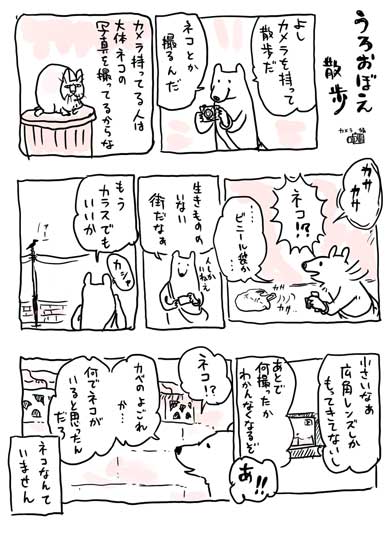 うろおぼえ
散歩
カメラ編
よし
カメラを持って
散歩だ
ネコとか
撮るんだ
カメラ持ってる人は
大体ネコの
写真を撮ってるからな
カサ
カサ
ネコ!?
……
ビニール袋か
……
カサ
カサ…
生きものの
いない
街だなぁ
人しか
いねえ
もう
カラスでも
いいか
カシャ
小さいなぁ
広角レンズしか
もってきてないし
あとで
何撮ったか
わかんなくなるぞ
あ!!
ネコ!?
カベのよごれ
か…
何でネコが
いると思ったん
だろ
ネコなんて
いません